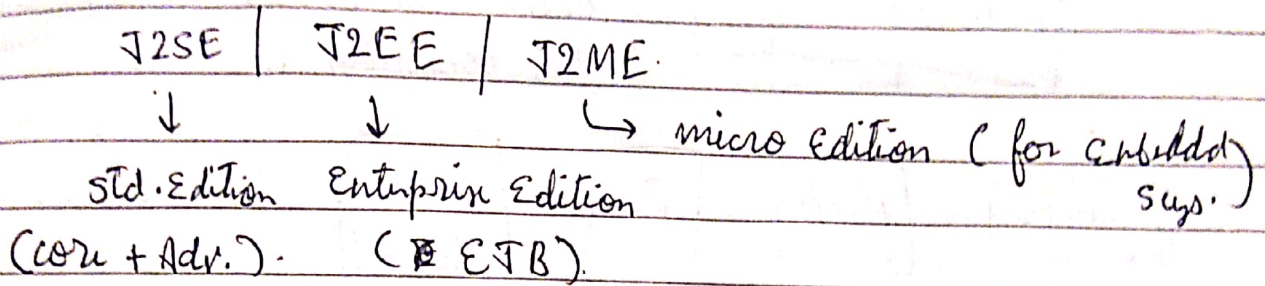 J2SE | J2EE | J2ME.
↓ ↓ ↳ micro Edition (for Embedded
Std. Edition Enterprise Edition Sys.)
(core + Adv.). (EJB).